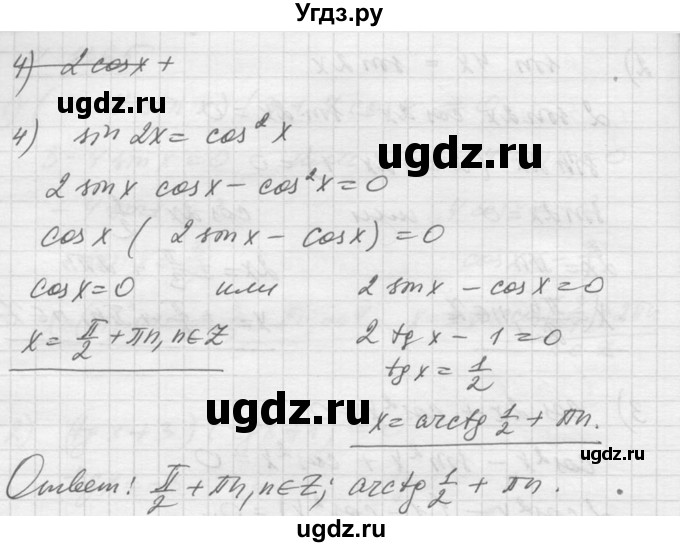 Угдз.ру
4) 2 cos x +
ugdz.ru ugdz.ru
4) sin 2x = cos² x
2 sin x cos x - cos² x = 0
cos x ( 2 sin x - cos x) = 0
ugdz.ru
cos x = 0 или 2 sin x - cos x = 0
x = π/2 + πn, n ∈ Z 2 tg x - 1 = 0
tg x = 1/2
ugdz.ru
x = arctg 1/2 + πn.
ugdz.ru
Ответ: π/2 + πn, n ∈ Z; arctg 1/2 + πn.
ugdz.ru ugdz.ru
ugdz.ru